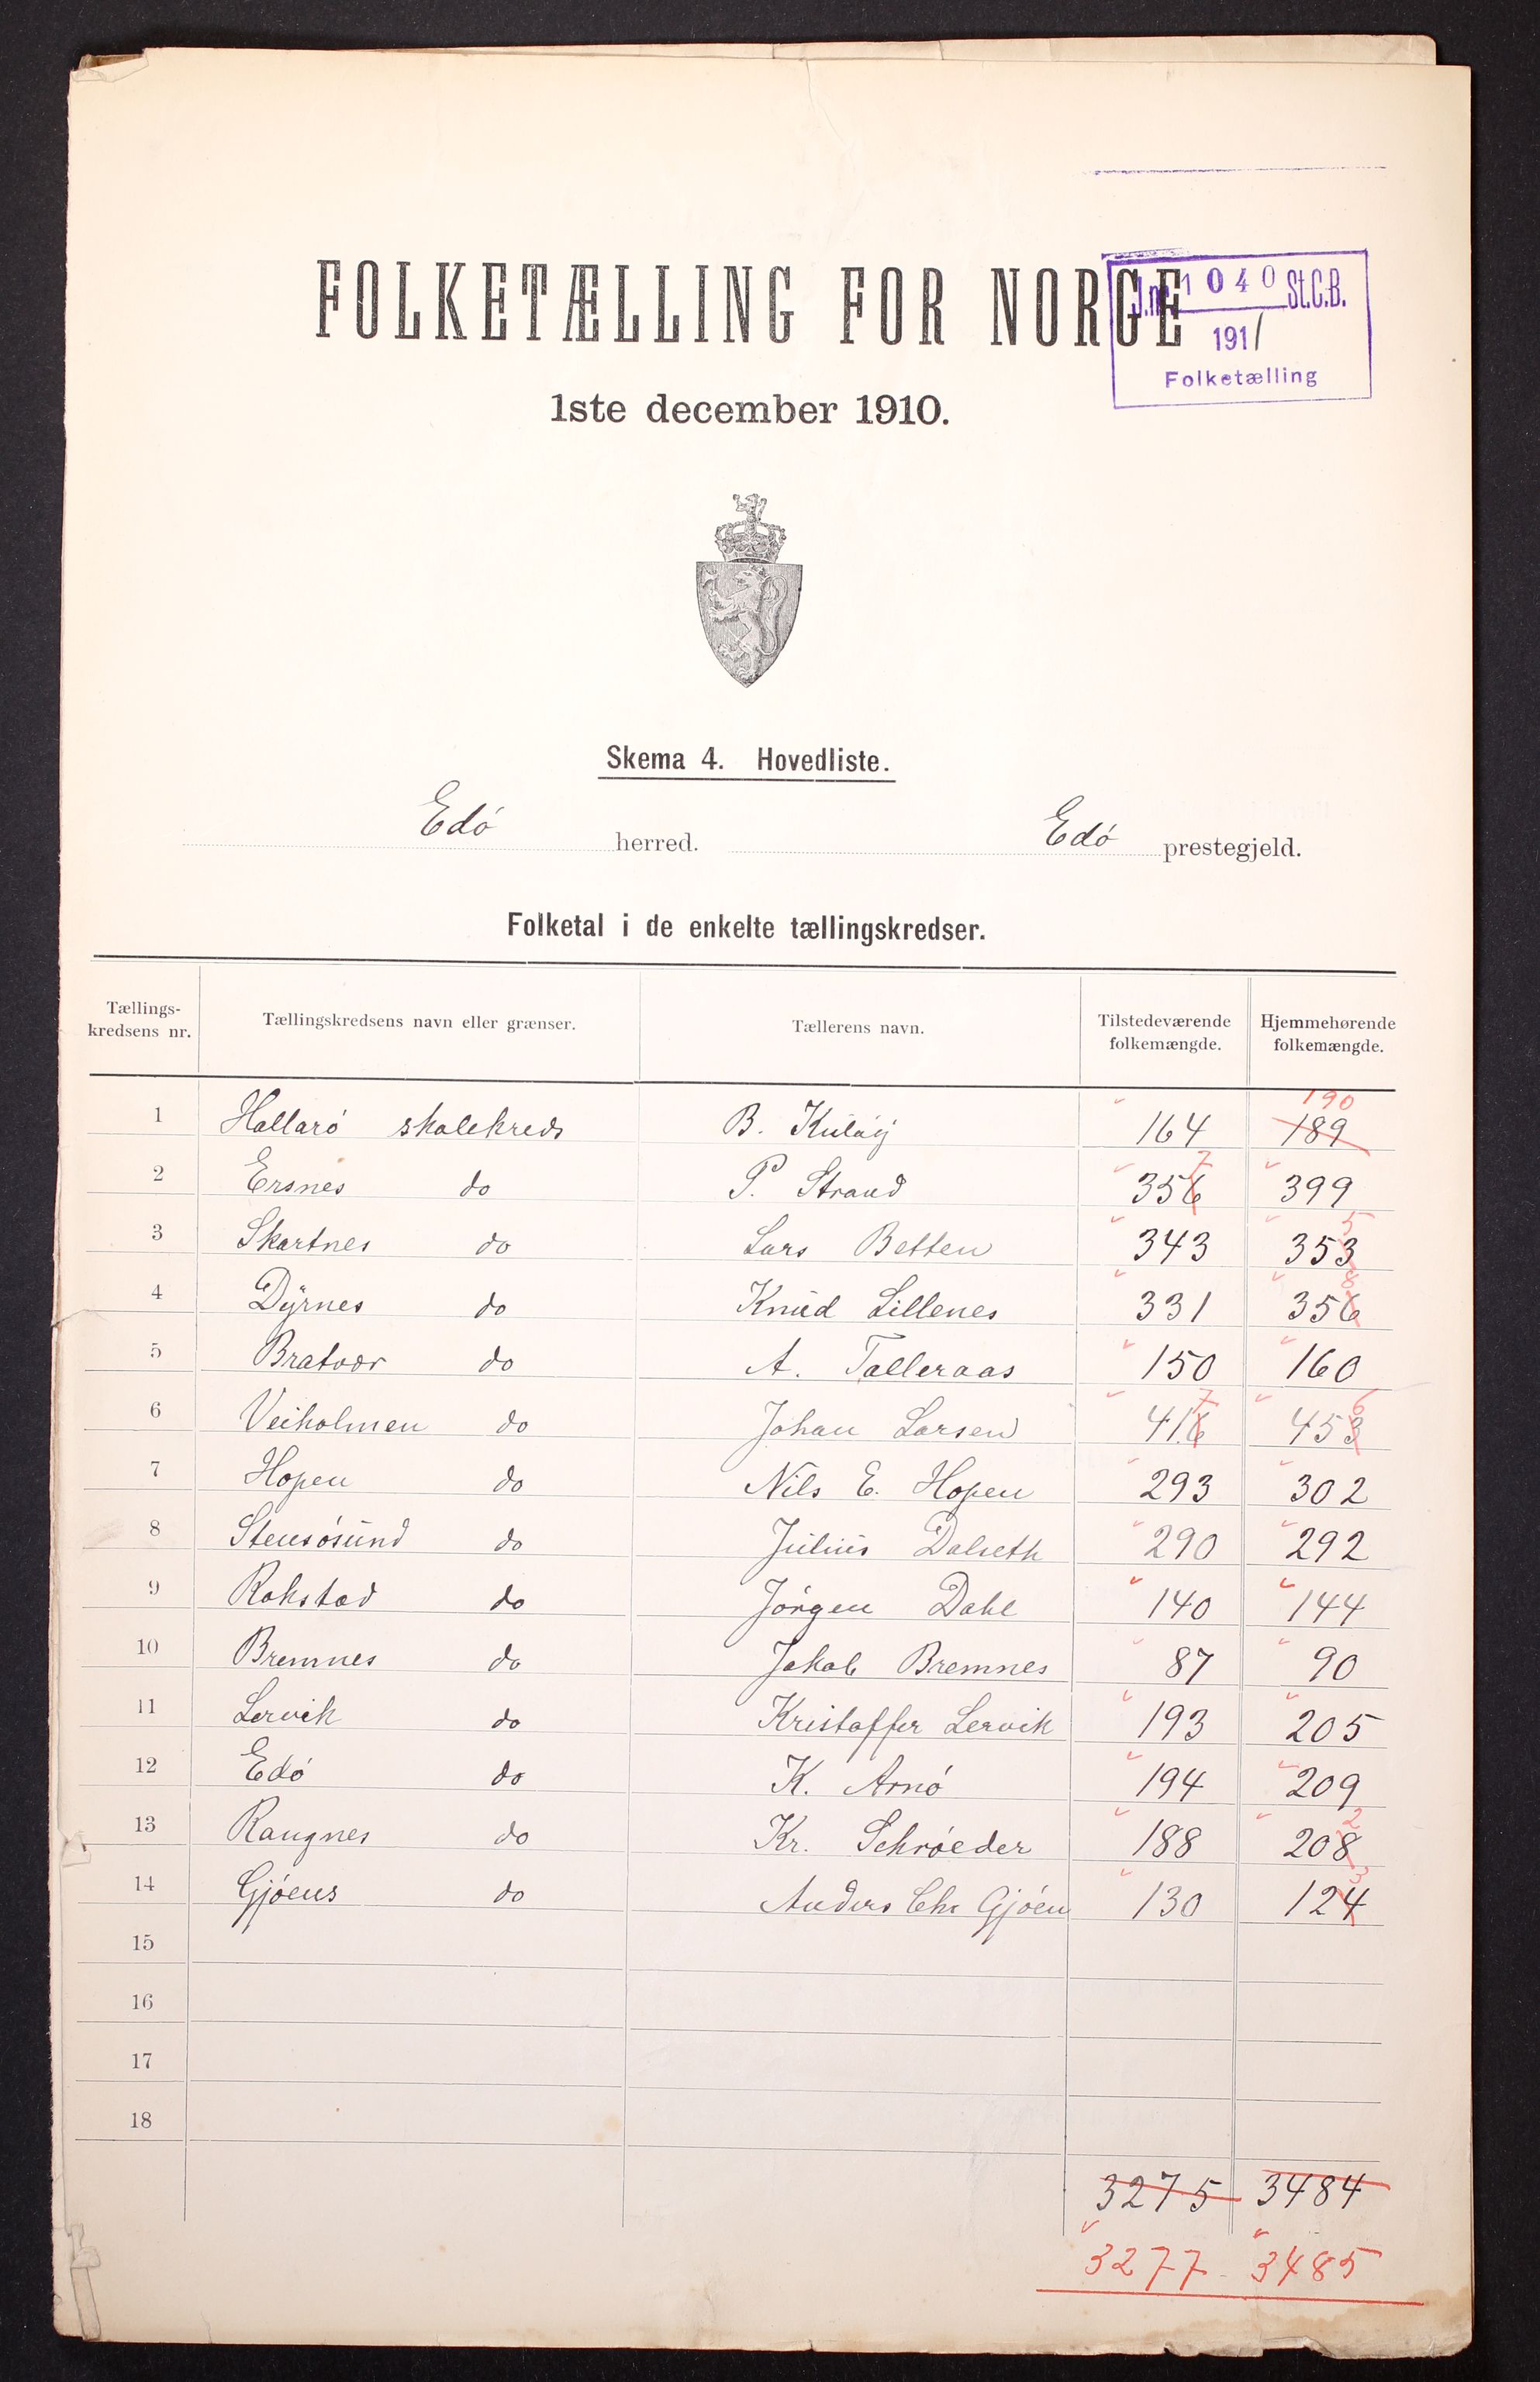 FOLKETÆLLING FOR NORGE
J.nr. 1040 St.C.B.
1911
Folketælling
1ste december 1910.
Skema 4. Hovedliste.
Edö herred. Edö prestegjeld.
Folketal i de enkelte tællingskredser.
Tællings-kredsens nr. Tællingskredsens navn eller grænser. Tællerens navn. Tilstedeværende folkemængde. Hjemmehørende folkemængde.
190
1 Hallarö skolekreds B. Kuløy 164 189
2 Ersnes do P. Strand 356 7 399
3 Skartnes do Lars Betten 343 353 5
4 Dyrnes do Knud Lillenes 331 356 8
5 Bratvær do A. Talleraas 150 160
6 Veiholmen do Johan Larsen 416 7 453 6
7 Hopen do Nils E. Hopen 293 302
8 Stensösund do Julius Dalseth 290 292
9 Rokstad do Jörgen Dahl 140 144
10 Bremnes do Jakob Bremnes 87 90
11 Lervik do Kristoffer Lervik 193 205
12 Edö do K. Arnö 194 209
13 Raugnes do Kr. Schröeder 188 208 2
14 Gjöens do Anders Chr Gjöen 130 124 3
15
16
17
18
3275 3484
3277 3485